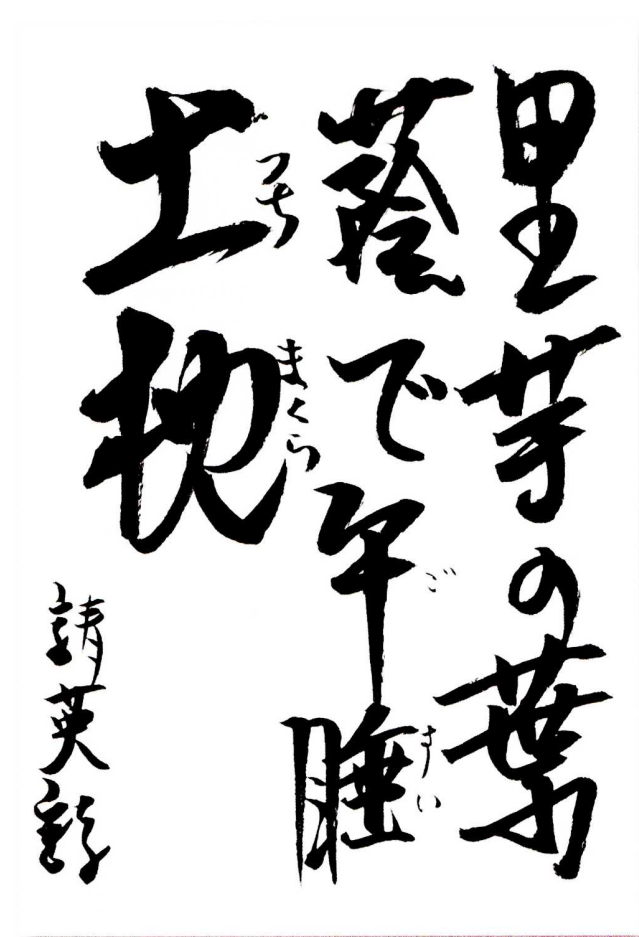 里芋の葉
蔭で午睡
ごすい
土枕
つちまくら
請英